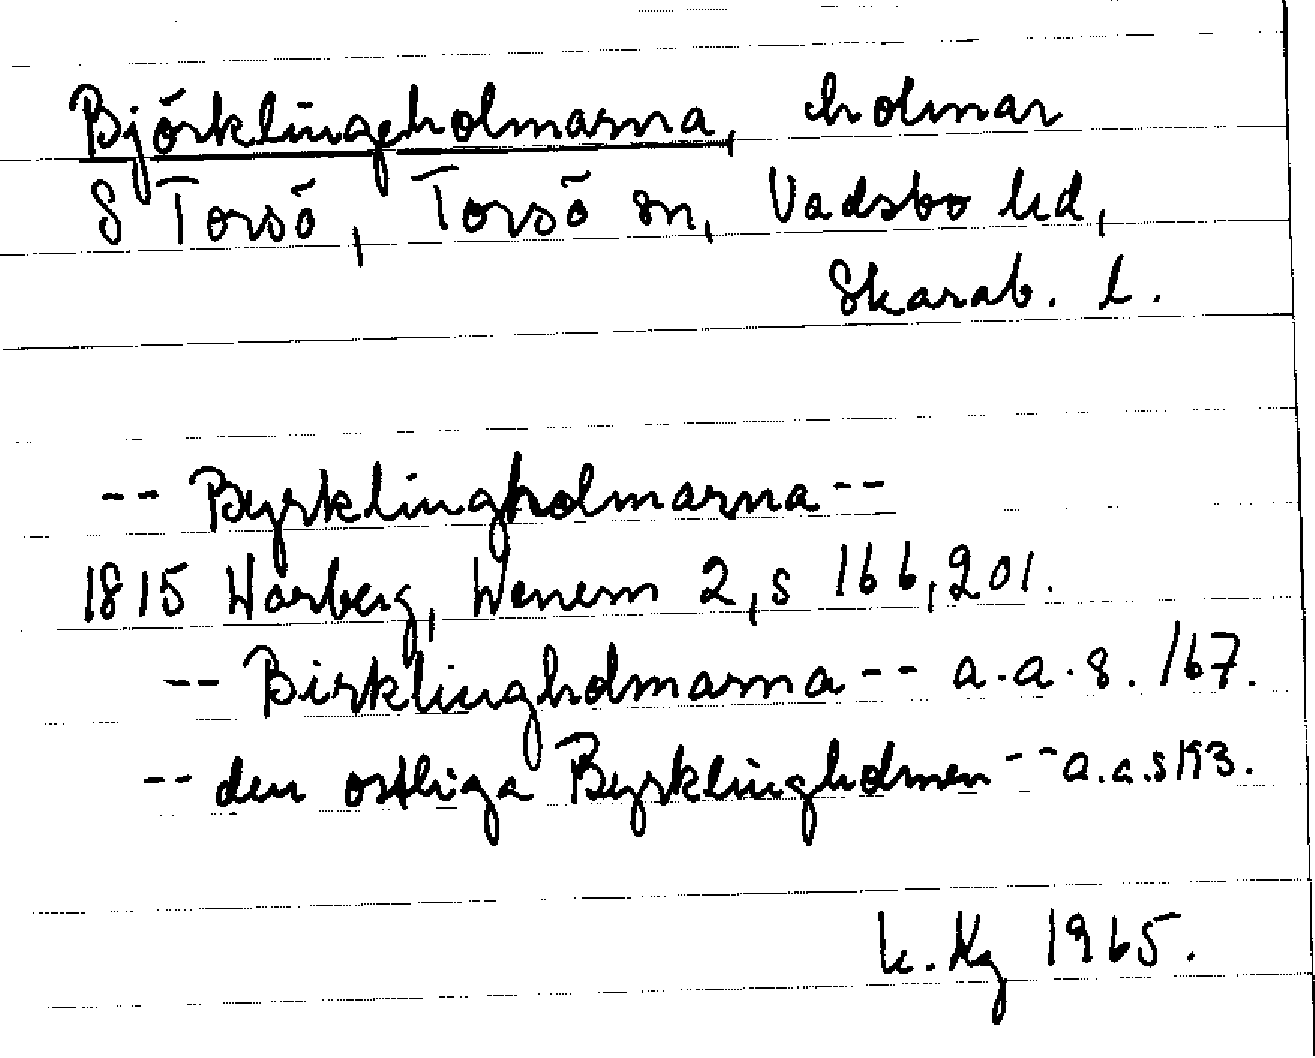 Björklingeholmarna, holmar
S Torsö, Torsö sn, Vadsbo hd,
Skarab. l.
-- Byrklingholmarna --
1815 Warberg, Wenern 2, s 166, 201.
-- Birklingholmarna -- a.a.s. 167.
-- den ostliga Byrklingholmen -- a.a.s 193.
K. Kg 1965.